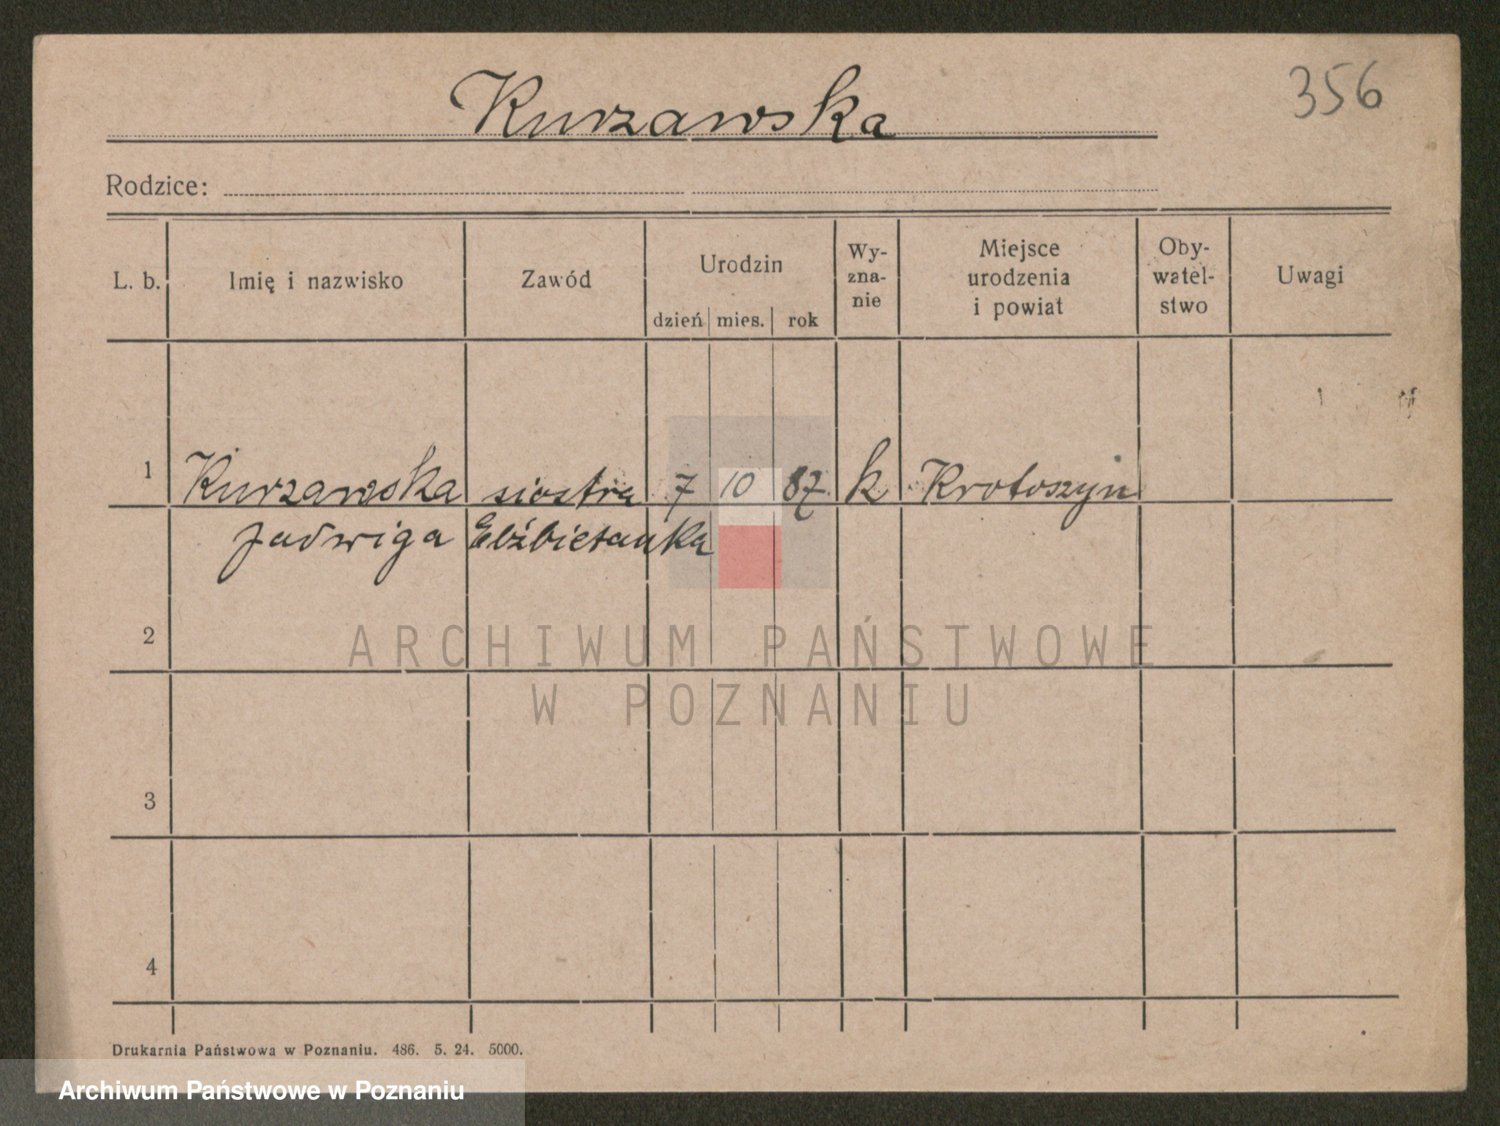 Kurzawska
356
Rodzice:
L. b. Imię i nazwisko Zawód Urodzin dzień mies. rok Wy-zna-nie Miejsce urodzenia i powiat Oby-watel-stwo Uwagi
1 Kurzawska siostra 7 10 87 k Krotoszyn
Jadwiga Elżbietanka
2
ARCHIWUM PAŃSTWOWE
W POZNANIU
3
4
Drukarnia Państwowa w Poznaniu. 486. 5. 24. 5000.
Archiwum Państwowe w Poznaniu